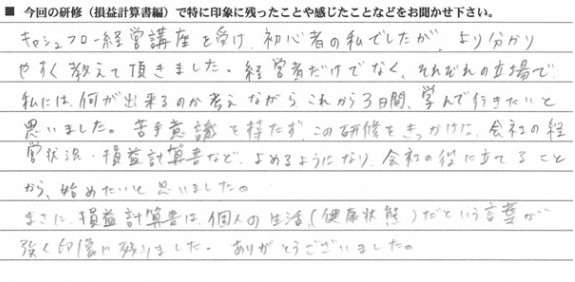 ■ 今回の研修（損益計算書編）で特に印象に残ったことや感じたことなどをお聞かせ下さい。
キャシュフロー経営講座を受け、初心者の私でしたが、より分かり
やすく教えて頂きました。経営者だけでなく、それぞれの立場で
私には、何が出来るのか考えながらこれから3日間、学んで行きたいと
思いました。苦手意識を持たず、この研修をきっかけに、会社の経
営状況・損益計算書など、よめるようになり、会社の役に立てること
から、始めたいと思いました。
まさに、損益計算書は、個人の生活（健康状態）だという言葉が
強く印象に残りました。ありがとうございました。